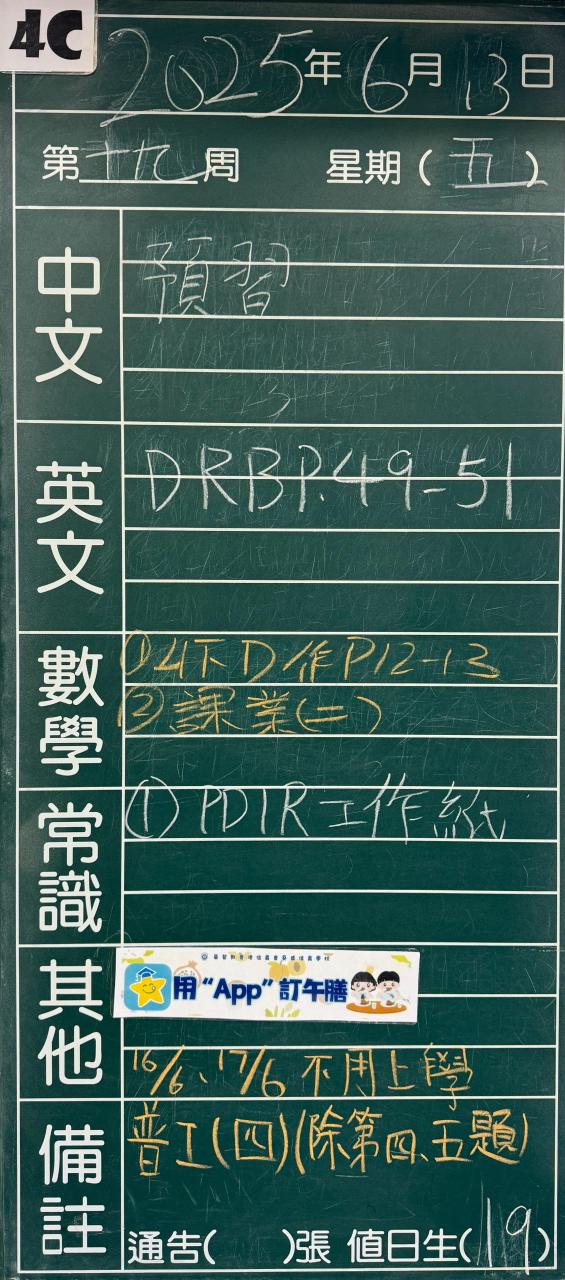 4C
2025年6月13日
第十九周 星期(五)
中文
預習
英文
DRB P.49-51
數學
①4下D作P12-13
②課業(二)
常識
①PDIR工作紙
其他
用“App”訂午膳
16/6、17/6 不用上學
備註
普工(四)(除第四、五題)
通告( )張 值日生(19)